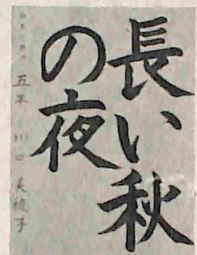 長い秋
の夜
五年 川口 美綾子